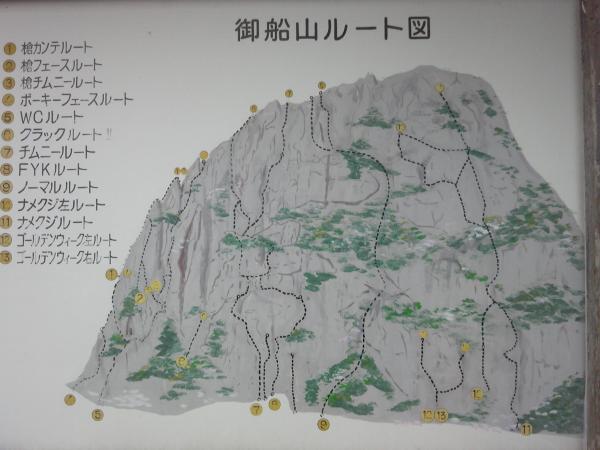 御船山ルート図
① 槍カンテルート
② 槍フェースルート
③ 槍チムニールート
④ ポーキーフェースルート
⑤ WCルート
⑥ クラックルート!!
⑦ チムニールート
⑧ FYKルート
⑨ ノーマルルート
⑩ ナメクジ左ルート
⑪ ナメクジルート
⑫ ゴールデンウィーク左ルート
⑬ ゴールデンウィーク右ルート